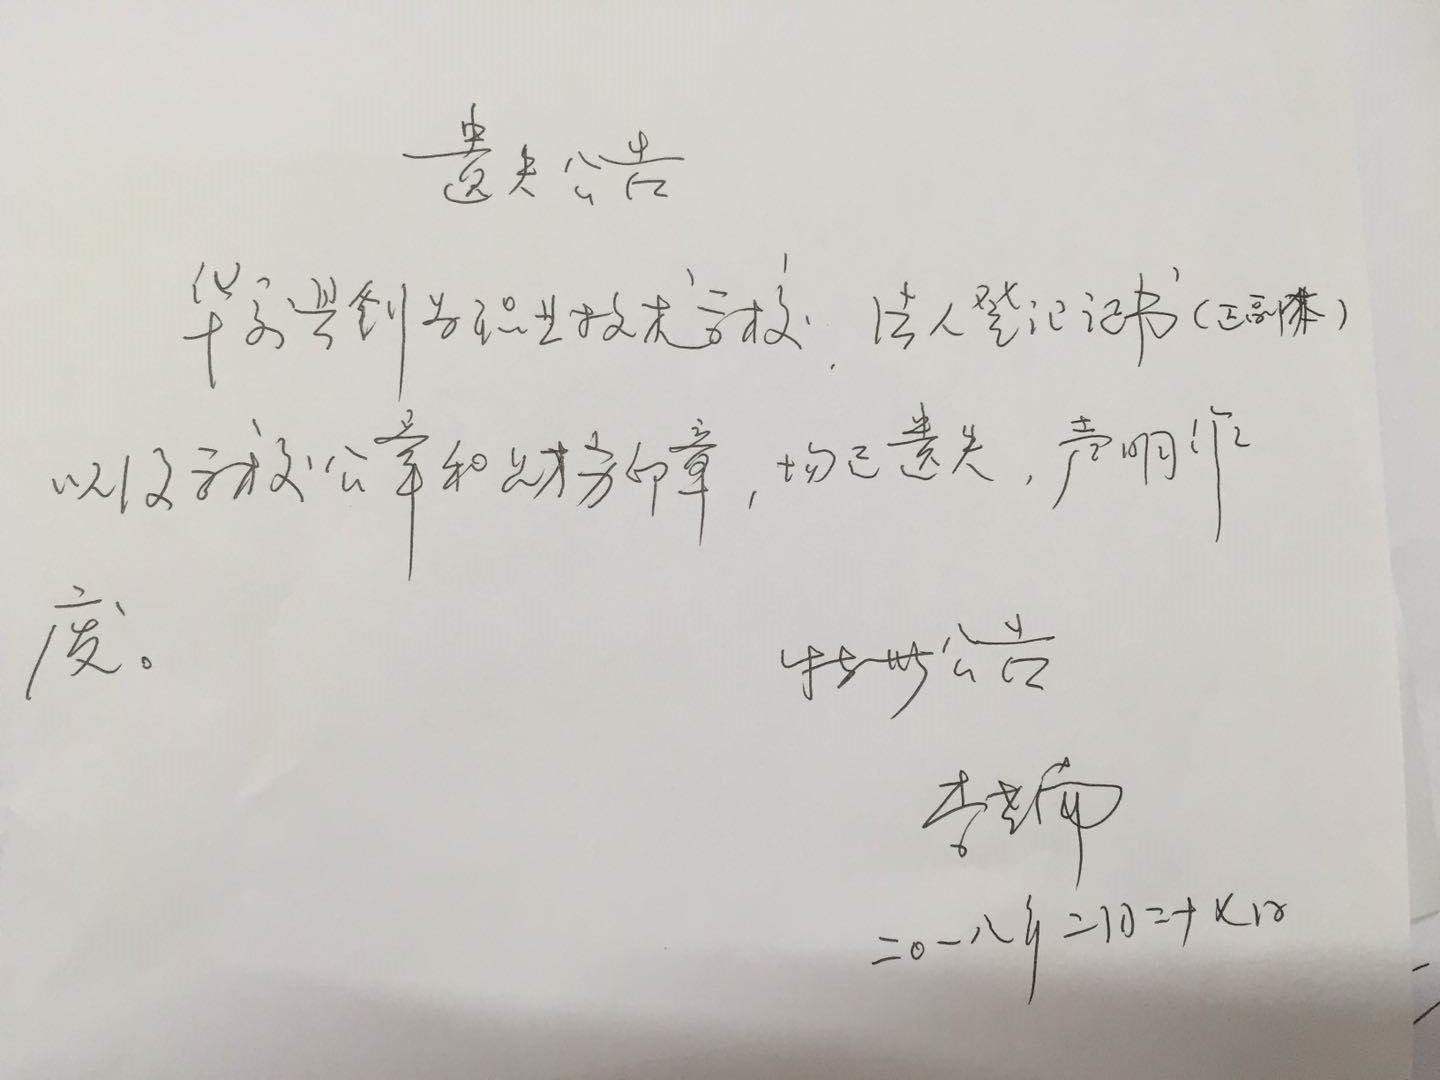 遗失公告
华容县创为职业技术学校,法人登记证书(正副本)
以及学校公章和财务印章,均已遗失,声明作
废。
特此公告
李
二0一八年二月二十日